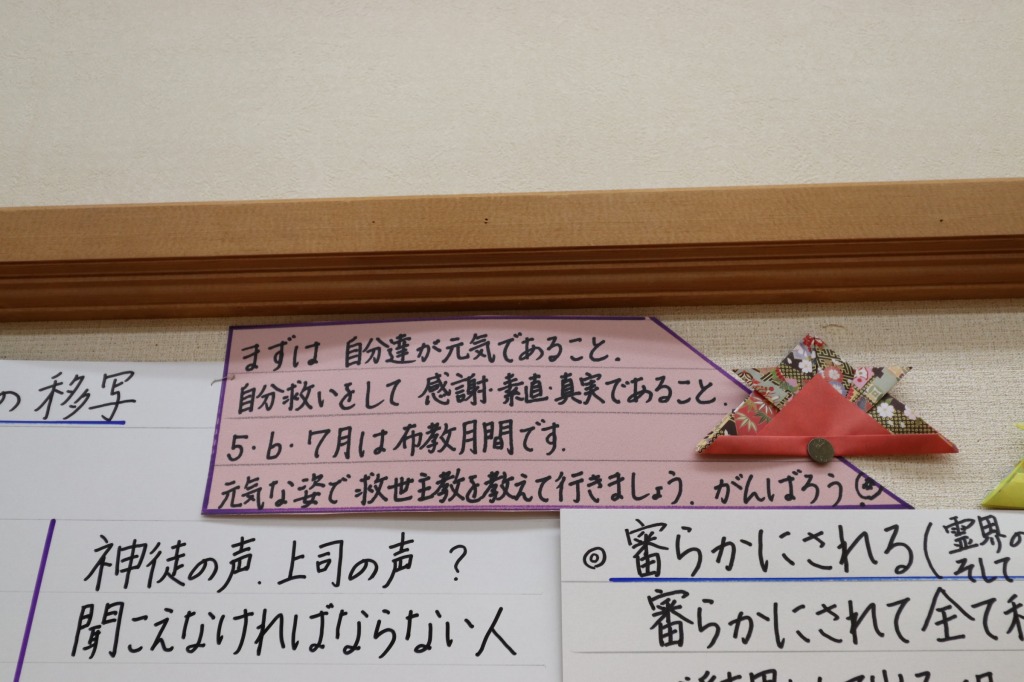 まずは 自分達が元気であること.
自分救いをして 感謝・素直・真実であること.
5・6・7月は布教月間です.
元気な姿で救世主教を教えて行きましょう. がんばろう
の 移写
神徒の声. 上司の声 ?
聞こえなければならない人
◎ 審らかにされる(霊界の
そして
審らかにされて全て